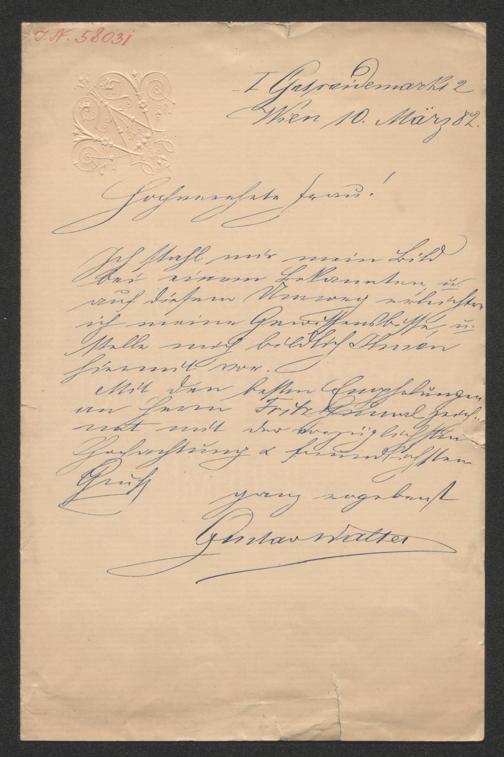 I. N. 58031
I Getreidemarkt 2
Wien 10. März 82.
Hochverehrte Frau!
Ich stahl mir mein Bild
bei einem Bekannten u.
auf diesem Umweg erleichtre
ich meine Gewissensbisse u.
stelle mich bildlich Ihnen
hiermit vor.
Mit den besten Empfehlungen
an Herrn Fritz zeich-
net mit der vorzüglichsten
Hochachtung & freundlichstem
Gruß
ganz ergebenst
Gustav Walter